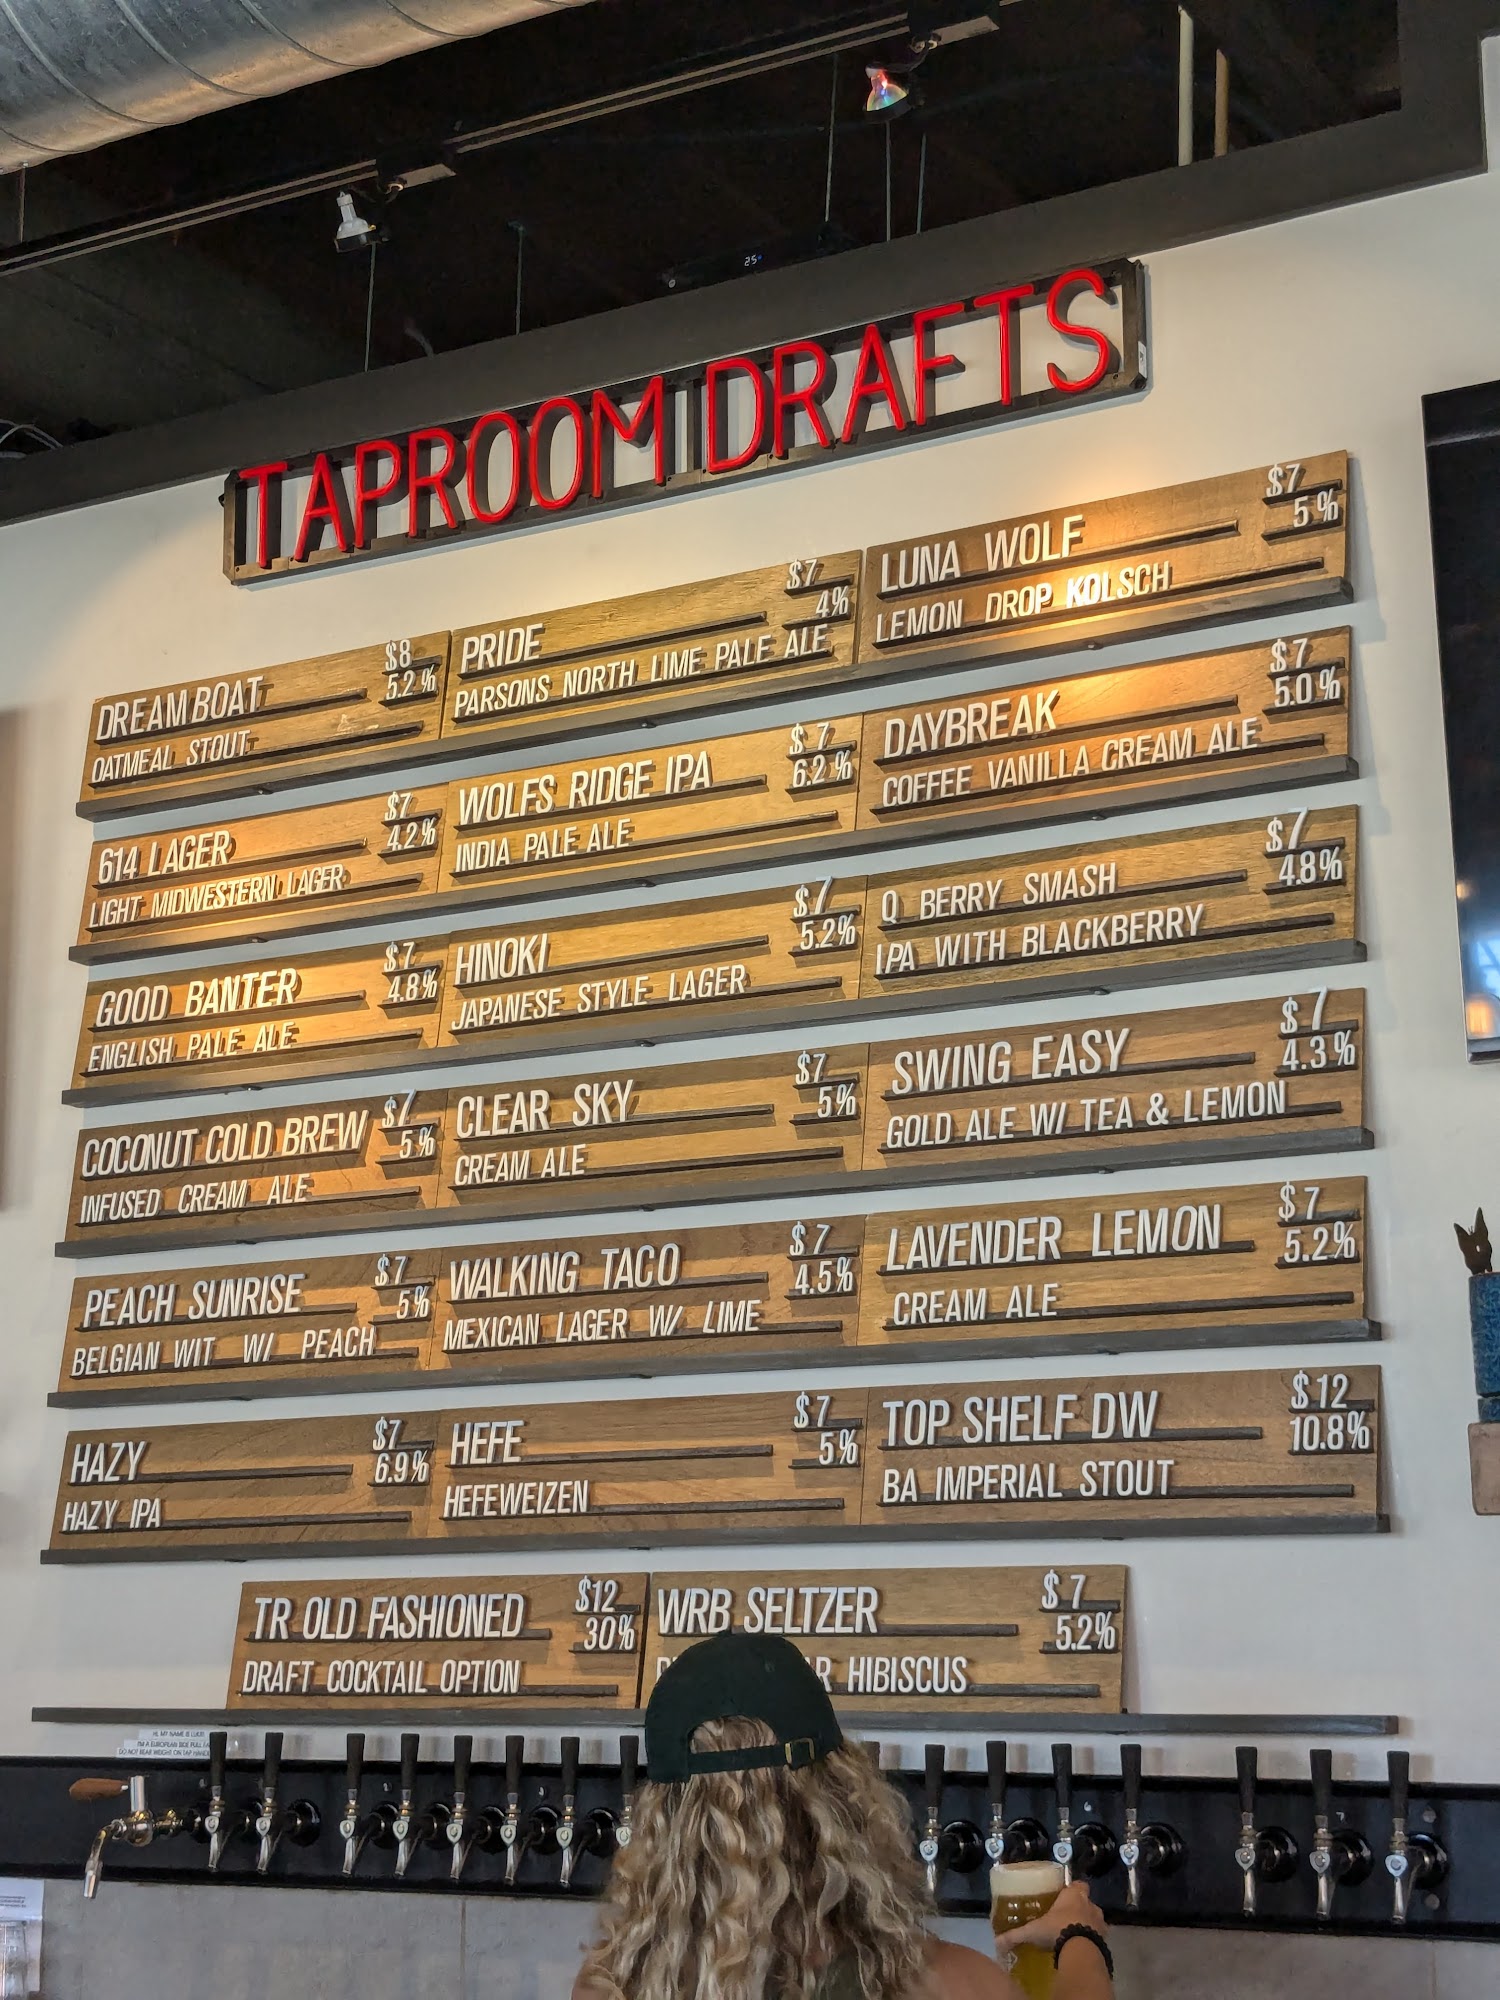 25°
TAPROOM DRAFTS
DREAM BOAT
$8
5.2%
OATMEAL STOUT
614 LAGER
$7
4.2%
LIGHT MIDWESTERN LAGER
GOOD BANTER
$7
4.8%
ENGLISH PALE ALE
COCONUT COLD BREW
$7
5%
INFUSED CREAM ALE
PEACH SUNRISE
$7
5%
BELGIAN WIT W/ PEACH
HAZY
$7
6.9%
HAZY IPA
PRIDE
$7
4%
PARSONS NORTH LIME PALE ALE
WOLFS RIDGE IPA
$7
6.2%
INDIA PALE ALE
HINOKI
$7
5.2%
JAPANESE STYLE LAGER
CLEAR SKY
$7
5%
CREAM ALE
WALKING TACO
$7
4.5%
MEXICAN LAGER W/ LIME
HEFE
$7
5%
HEFEWEIZEN
LUNA WOLF
$7
5%
LEMON DROP KOLSCH
DAYBREAK
$7
5.0%
COFFEE VANILLA CREAM ALE
Q BERRY SMASH
$7
4.8%
IPA WITH BLACKBERRY
SWING EASY
$7
4.3%
GOLD ALE W/ TEA & LEMON
LAVENDER LEMON
$7
5.2%
CREAM ALE
TOP SHELF DW
$12
10.8%
BA IMPERIAL STOUT
TR OLD FASHIONED
$12
30%
DRAFT COCKTAIL OPTION
WRB SELTZER
$7
5.2%
HIBISCUS
HI, MY NAME IS
I'M A EUROPEAN SIDE PULL
DO NOT BEAR WEIGHT ON TAP